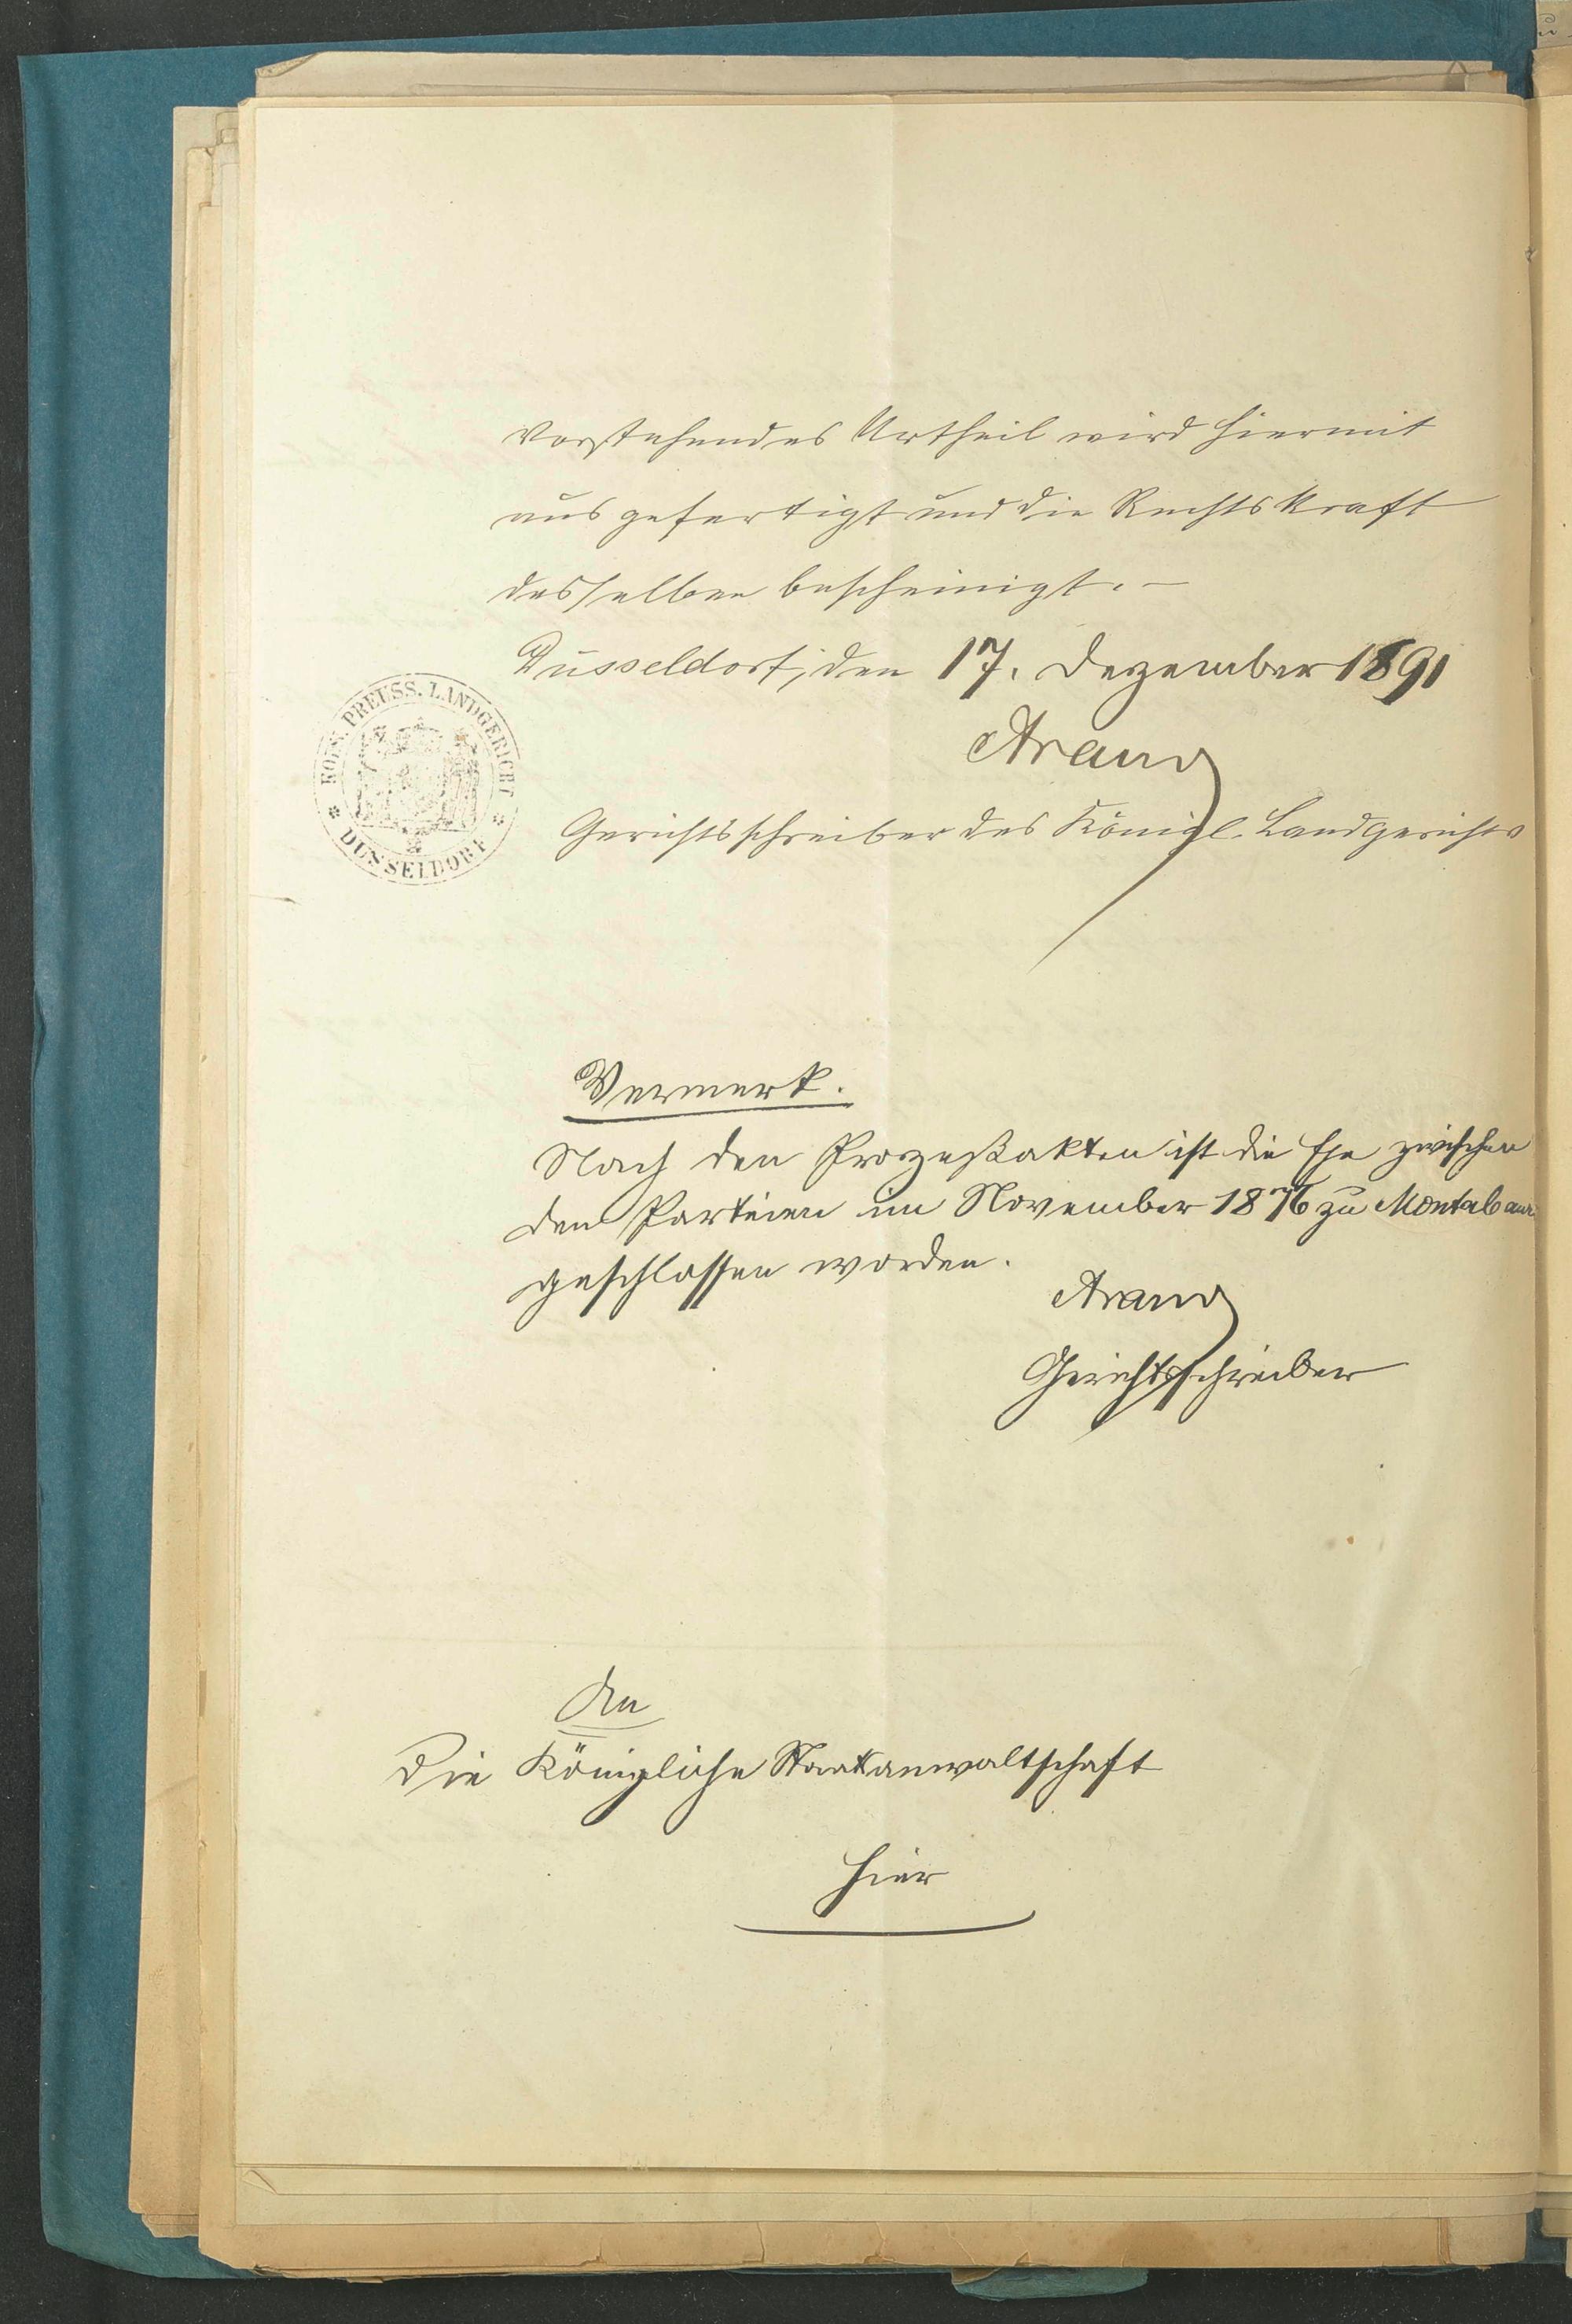 Vorstehendes Urtheil wird hiermit
ausgefertigt und die Rechtskraft
desselben bescheinigt. –
Düsseldorf, den 17. Dezember 1891
KOEN. PREUSS. LANDGERICHT
* DUSSELDORF *
Arand
Gerichtsschreiber des Königl. Landgerichts
Vermerk.
Nach den Prozeßakten ist die Ehe zwischen
den Parteien im November 1876 zu Montabaur
geschlossen worden.
Arand
Gerichtsschreiber
An
die Königliche Staatsanwaltschaft
hier